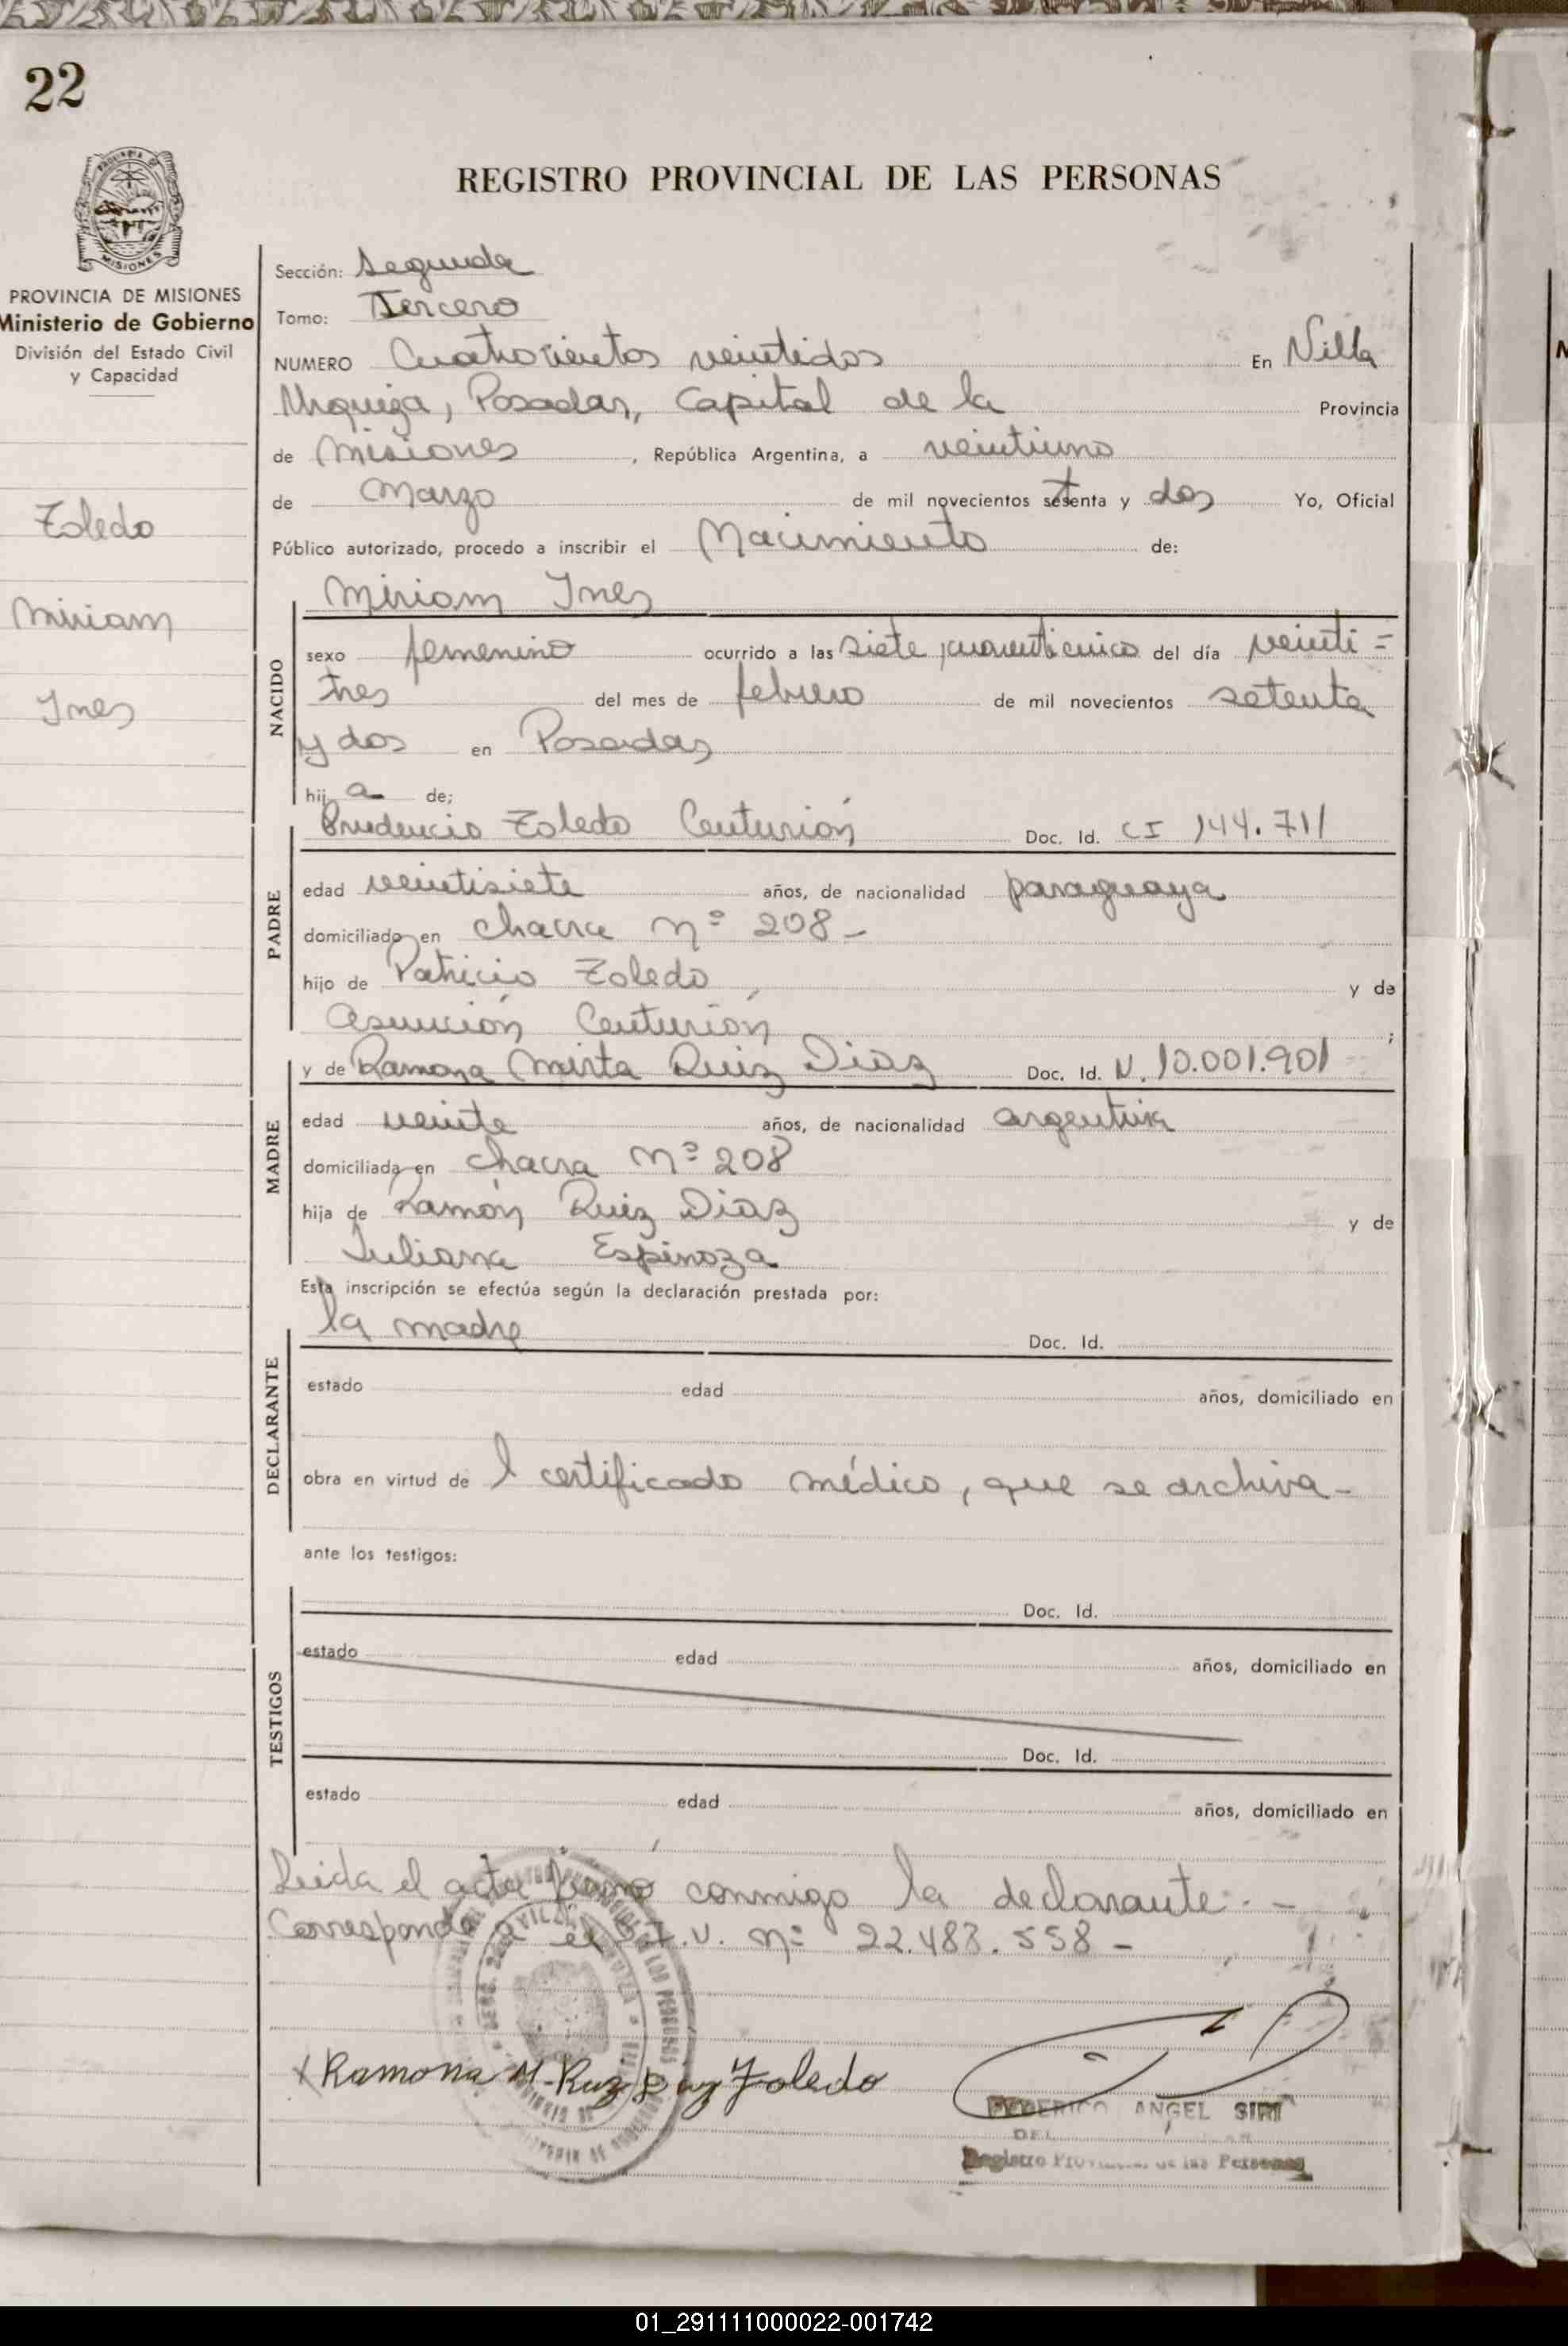 22
REGISTRO PROVINCIAL DE LAS PERSONAS
PROVINCIA DE MISIONES
MISIONES
PROVINCIA DE MISIONES
Ministerio de Gobierno
División del Estado Civil
y Capacidad
Toledo
Miriam
Ines
Sección: Segunda
Tomo: Tercero
NUMERO Cuatrocientos veintidos En Villa
Urquiza, Posadas, Capital de la Provincia
de Misiones, República Argentina, a veintiuno
de Marzo de mil novecientos setenta y dos Yo, Oficial
Público autorizado, procedo a inscribir el Nacimiento de:
Miriam Ines
NACIDO
sexo femenino ocurrido a las siete, cuarenticinco del día veinti=
tres del mes de febrero de mil novecientos setenta
y dos en Posadas
hija de;
PADRE
Prudencio Toledo Centurión Doc. Id. CI 144.711
edad veintisiete años, de nacionalidad paraguaya
domiciliado en chacra nº 208-
hijo de Patricio Toledo y de
Asunción Centurión;
MADRE
y de Ramona Mirta Ruiz Diaz Doc. Id. N. 10.001.901
edad veinte años, de nacionalidad argentina
domiciliada en chacra Nº 208
hija de Ramón Ruiz Diaz y de
Juliana Espinoza
Esta inscripción se efectúa según la declaración prestada por:
DECLARANTE
la madre Doc. Id.
estado edad años, domiciliado en
obra en virtud de l certificado médico, que se archiva-
ante los testigos:
TESTIGOS
Doc. Id.
estado edad años, domiciliado en
Doc. Id.
estado edad años, domiciliado en
Leida el acta firmó conmigo la declarante.-
Corresponde a el D.I.U. nº 22.483.558-
x Ramona M. Ruz Diaz Toledo
FEDERICO ANGEL SIRI
Registro Provincial de las Personas
01_291111000022-001742